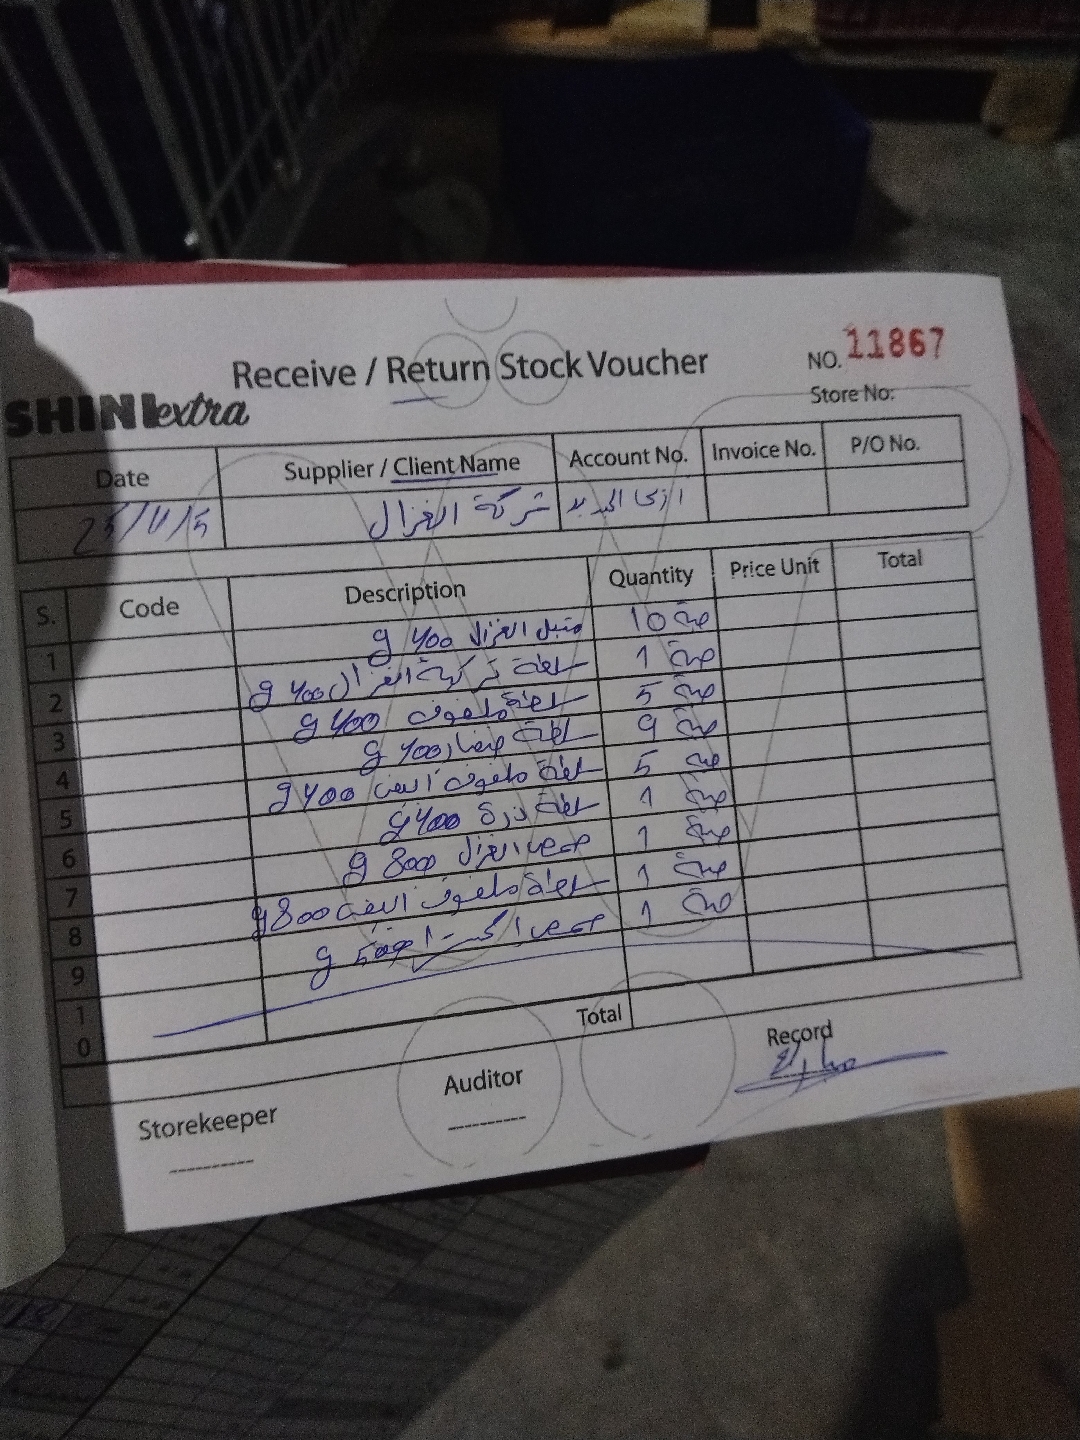 Receive / Return Stock Voucher
NO. 11867
SHINI extra
Store No:
Date Supplier / Client Name Account No. Invoice No. P/O No.
25/11/5 شركة الغزال
S. Code Description Quantity Price Unit Total
1 متبل الغزال 400 g 10
2 سلطة تركية الغزال 400 g 1
3 سلطة ملفوف 400 g 5
4 سلطة خضار 400 g 9
5 سلطة ملفوف ابيض 400 g 5
6 سلطة ذرة 400 g 1
7 حمص الغزال 800 g 1
8 سلطة ملفوف ابيض 800 g 1
9 حمص g 1
10
Total
Storekeeper Auditor Record